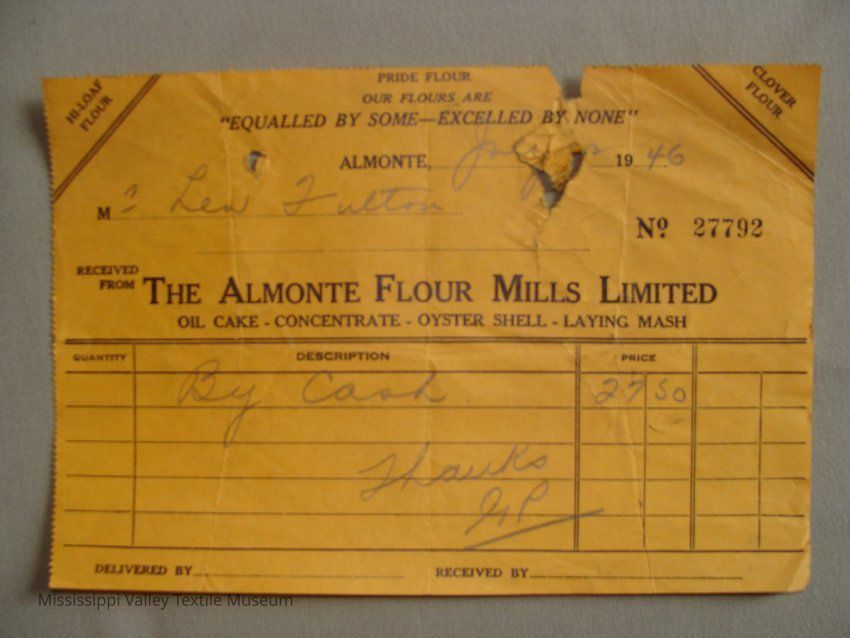 PRIDE FLOUR
HI-LOAF FLOUR
CLOVER FLOUR
OUR FLOURS ARE
"EQUALLED BY SOME—EXCELLED BY NONE"
ALMONTE, 19 46
M r Len Fulton
Nº 27792
RECEIVED FROM THE ALMONTE FLOUR MILLS LIMITED
OIL CAKE - CONCENTRATE - OYSTER SHELL - LAYING MASH
QUANTITY DESCRIPTION PRICE
By Cash 27 50
Thanks
DELIVERED BY RECEIVED BY
Mississippi Valley Textile Museum